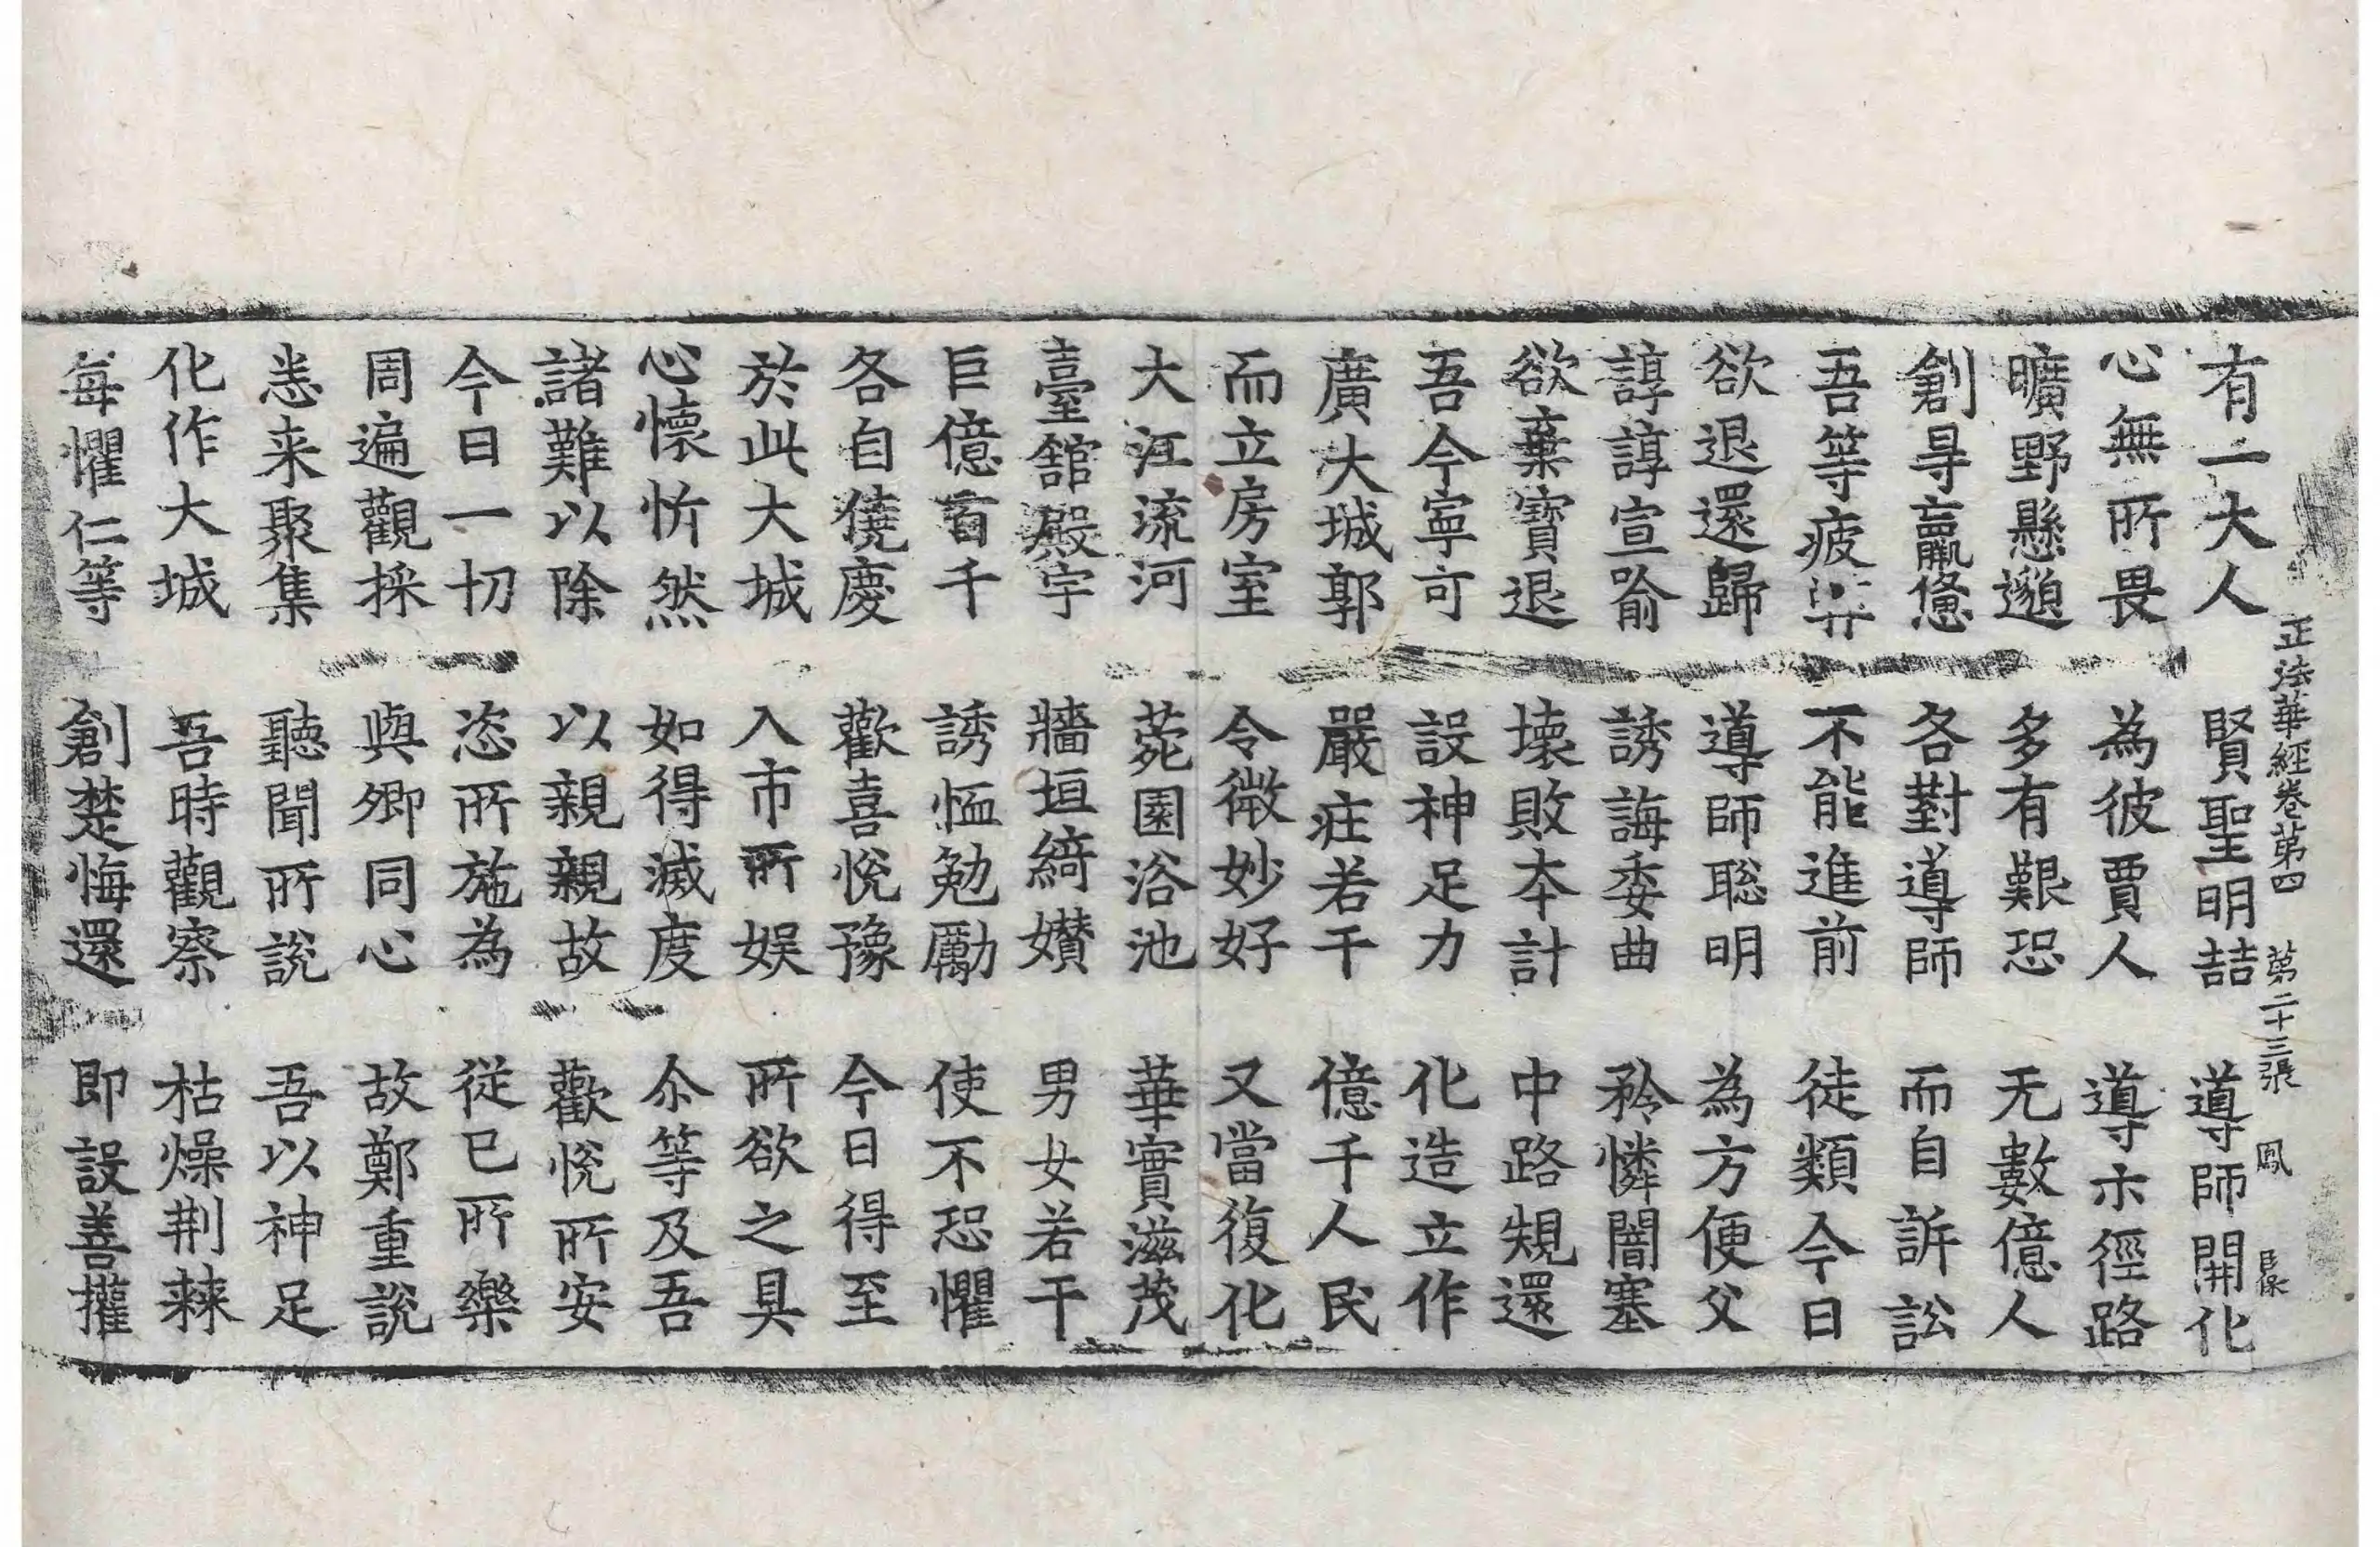 正法華經卷第四　第二十三張　鳳
有一大人　賢聖明喆　導師開化
心無所畏　為彼賈人　導示徑路
曠野懸邈　多有艱恐　无數億人
創㝵羸憊　各對導師　而自訴訟
吾等疲弊　不能進前　徒類今日
欲退還歸　導師聡明　為方便父
諄諄宣喻　誘誨委曲　矜憐闇塞
欲棄寶退　壞敗夲計　中路規還
吾今寧可　設神足力　化造立作
廣大城郭　嚴庄若干　億千人民
而立房室　令微妙好　又當復化
大江流河　菀園浴池　華實滋茂
臺舘殿宇　牆垣綺䰖　男女若干
巨億百千　誘恤勉勵　使不恐懼
各自僥慶　歡喜悅豫　今日得至
於此大城　入市所娛　所欲之具
心懷忻然　如得滅度　尒等及吾
諸難以除　以親親故　歡悅所安
今日一切　恣所施為　從已所樂
周遍觀採　與卿同心　故鄭重說
悉来聚集　聽聞所說　吾以神足
化作大城　吾時觀察　枯燥荆棘
每懼仁等　創楚悔還　即設善權